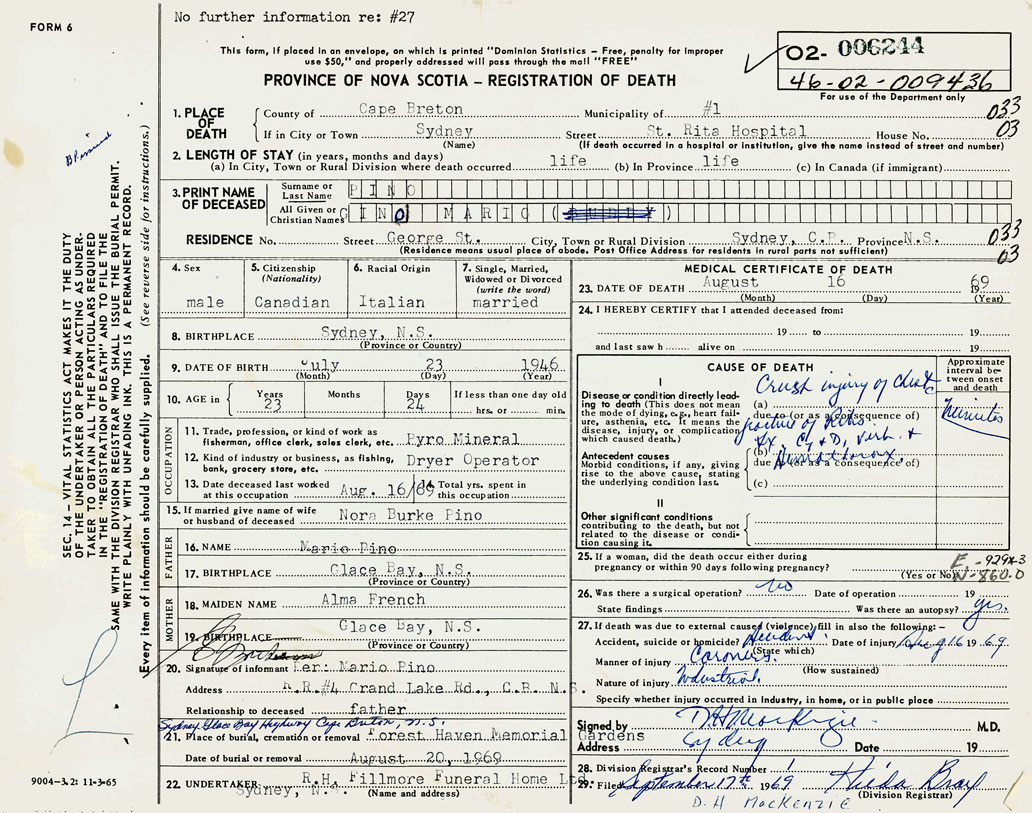 No further information re: #27
FORM 6
This form, if placed in an envelope, on which is printed "Dominion Statistics – Free, penalty for improper
use $50," and properly addressed will pass through the mail "FREE"
PROVINCE OF NOVA SCOTIA – REGISTRATION OF DEATH
02- 006244
46-02-009436
For use of the Department only
1. PLACE OF DEATH
County of Cape Breton Municipality of #1 033
If in City or Town Sydney Street St. Rita Hospital House No. 03
(Name) (If death occurred in a hospital or institution, give the name instead of street and number)
2. LENGTH OF STAY (in years, months and days)
(a) In City, Town or Rural Division where death occurred life (b) In Province life (c) In Canada (if immigrant)
3. PRINT NAME OF DECEASED
Surname or Last Name PINO
All Given or Christian Names GINO MARIO ( )
RESIDENCE No. Street George St. City, Town or Rural Division Sydney, C.B. Province N.S. 033
(Residence means usual place of abode. Post Office Address for residents in rural parts not sufficient) 03
4. Sex
male
5. Citizenship
(Nationality)
Canadian
6. Racial Origin
Italian
7. Single, Married,
Widowed or Divorced
(write the word)
married
8. BIRTHPLACE Sydney, N.S.
(Province or Country)
9. DATE OF BIRTH July 23 1946
(Month) (Day) (Year)
10. AGE in Years Months Days If less than one day old
23 24 hrs. or min.
OCCUPATION
11. Trade, profession, or kind of work as
fisherman, office clerk, sales clerk, etc. Pyro Mineral
12. Kind of industry or business, as fishing,
bank, grocery store, etc. Dryer Operator
13. Date deceased last worked at this occupation Aug. 16/69 14. Total yrs. spent in this occupation
15. If married give name of wife
or husband of deceased Nora Burke Pino
FATHER
16. NAME Mario Pino
17. BIRTHPLACE Glace Bay, N.S.
(Province or Country)
MOTHER
18. MAIDEN NAME Alma French
19. BIRTHPLACE Glace Bay, N.S.
(Province or Country)
20. Signature of informant Per: Mario Pino
Address R.R.#4 Grand Lake Rd., C.B. N.S.
Relationship to deceased father
Sydney Glace Bay Highway Cape Breton, N.S.
21. Place of burial, cremation or removal Forest Haven Memorial Gardens
Date of burial or removal August 20, 1969
22. UNDERTAKER R.H. Fillmore Funeral Home Ltd.
Sydney, N.S. (Name and address)
MEDICAL CERTIFICATE OF DEATH
23. DATE OF DEATH August 16 1969
(Month) (Day) (Year)
24. I HEREBY CERTIFY that I attended deceased from:
19 to 19
and last saw h alive on 19
CAUSE OF DEATH
Approximate interval between onset and death
I
Disease or condition directly leading to death (This does not mean the mode of dying, e.g., heart failure, asthenia, etc. It means the disease, injury, or complication which caused death.)
(a) Crush injury of Chest minutes
due to (or as a consequence of)
fracture of Ribs.
Antecedent causes
Morbid conditions, if any, giving rise to the above cause, stating the underlying condition last.
(b)
Hemothorax.
due to (or as a consequence of)
(c)
II
Other significant conditions
contributing to the death, but not related to the disease or condition causing it.
25. If a woman, did the death occur either during
pregnancy or within 90 days following pregnancy?
(Yes or No)
E-929x-3
N-860.0
26. Was there a surgical operation? no Date of operation 19
State findings Was there an autopsy? yes.
27. If death was due to external causes (violence) fill in also the following:–
Accident, suicide or homicide? Accident. Date of injury Aug 16 1969
(State which)
Manner of injury Coroners.
(How sustained)
Nature of injury Industrial.
Specify whether injury occurred in Industry, in home, or in public place
Signed by D.H. MacKenzie M.D.
Address Sydney Date 19
28. Division Registrar's Record Number 1
29. Filed September 17th 1969 Hilda Bray
(Division Registrar)
D. H. MacKENZIE
SEC. 14 – VITAL STATISTICS ACT MAKES IT THE DUTY
OF THE UNDERTAKER OR PERSON ACTING AS UNDER-
TAKER TO OBTAIN ALL THE PARTICULARS REQUIRED
IN THE "REGISTRATION OF DEATH" AND TO FILE THE
SAME WITH THE DIVISION REGISTRAR WHO SHALL ISSUE THE BURIAL PERMIT.
WRITE PLAINLY WITH UNFADING INK. THIS IS A PERMANENT RECORD.
Every item of information should be carefully supplied. (See reverse side for instructions.)
9004-3.2: 11-3-65